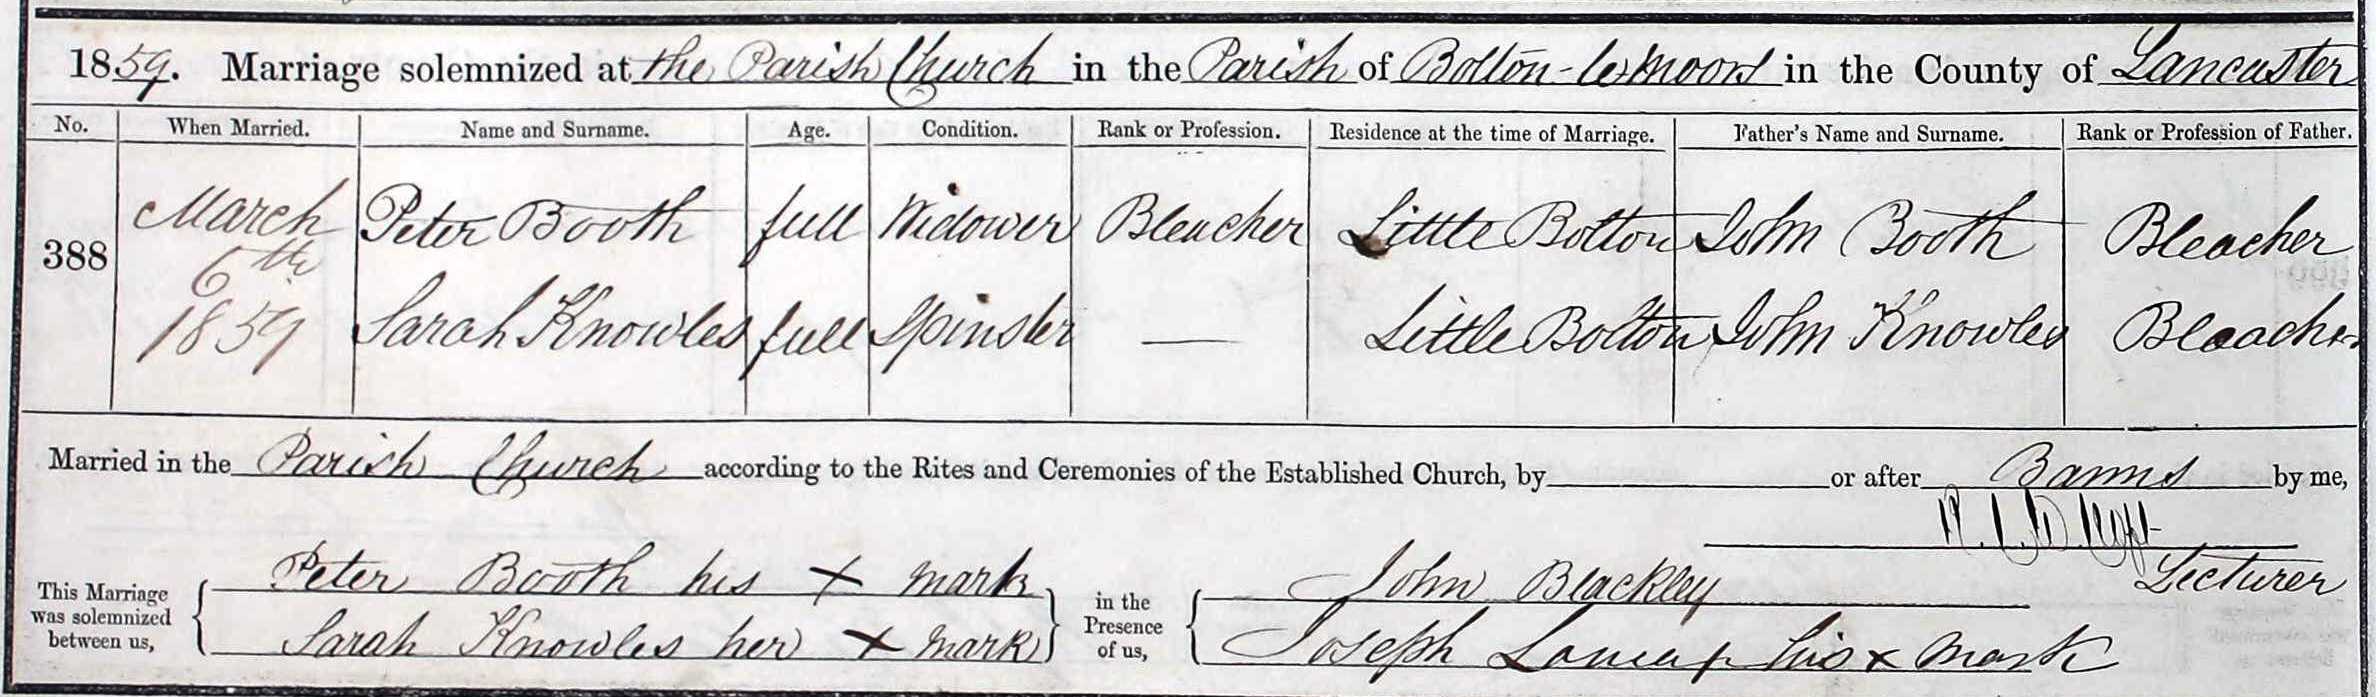 1859. Marriage solemnized at the Parish Church in the Parish of Bolton-le-moors in the County of Lancaster
No. When Married. Name and Surname. Age. Condition. Rank or Profession. Residence at the time of Marriage. Father's Name and Surname. Rank or Profession of Father.
388 March 6th 1859 Peter Booth full Widower Bleacher Little Bolton John Booth Bleacher
Sarah Knowles full Spinster — Little Bolton John Knowles Bleacher
Married in the Parish Church according to the Rites and Ceremonies of the Established Church, by or after Banns by me,
Lecturer
This Marriage was solemnized between us, Peter Booth his x mark in the Presence of us, John Blackley
Sarah Knowles her x mark Joseph his x mark